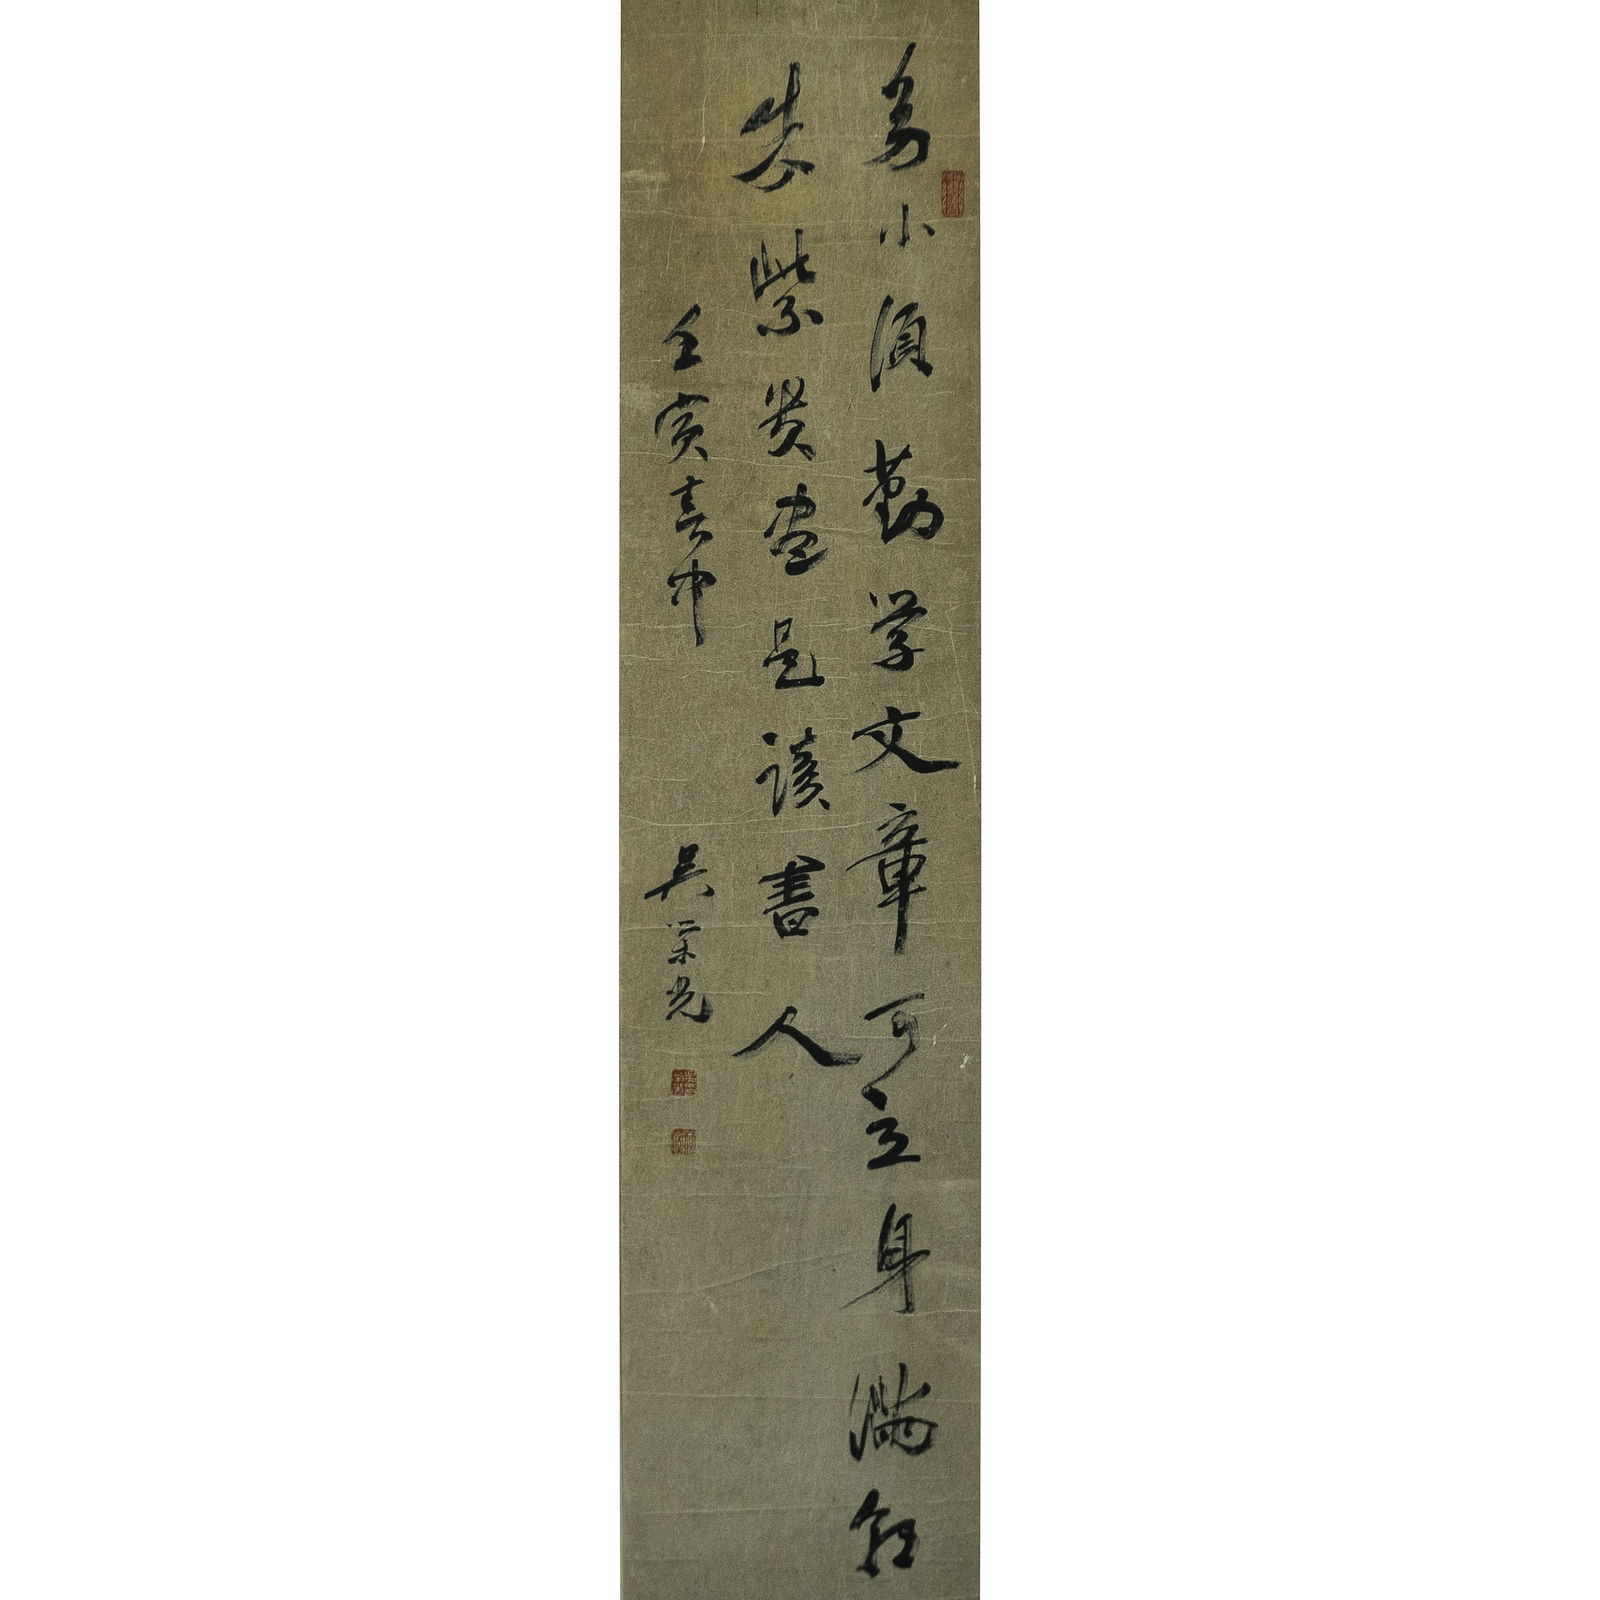 身小須勤学文章可立身滿朝
朱紫贵盡是讀書人
壬寅喜中
吳荣光